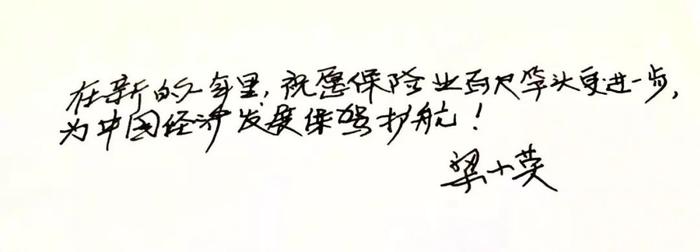 在新的一年里,祝愿保险业百尺竿头更进一步,
为中国经济发展保驾护航!
梁小英